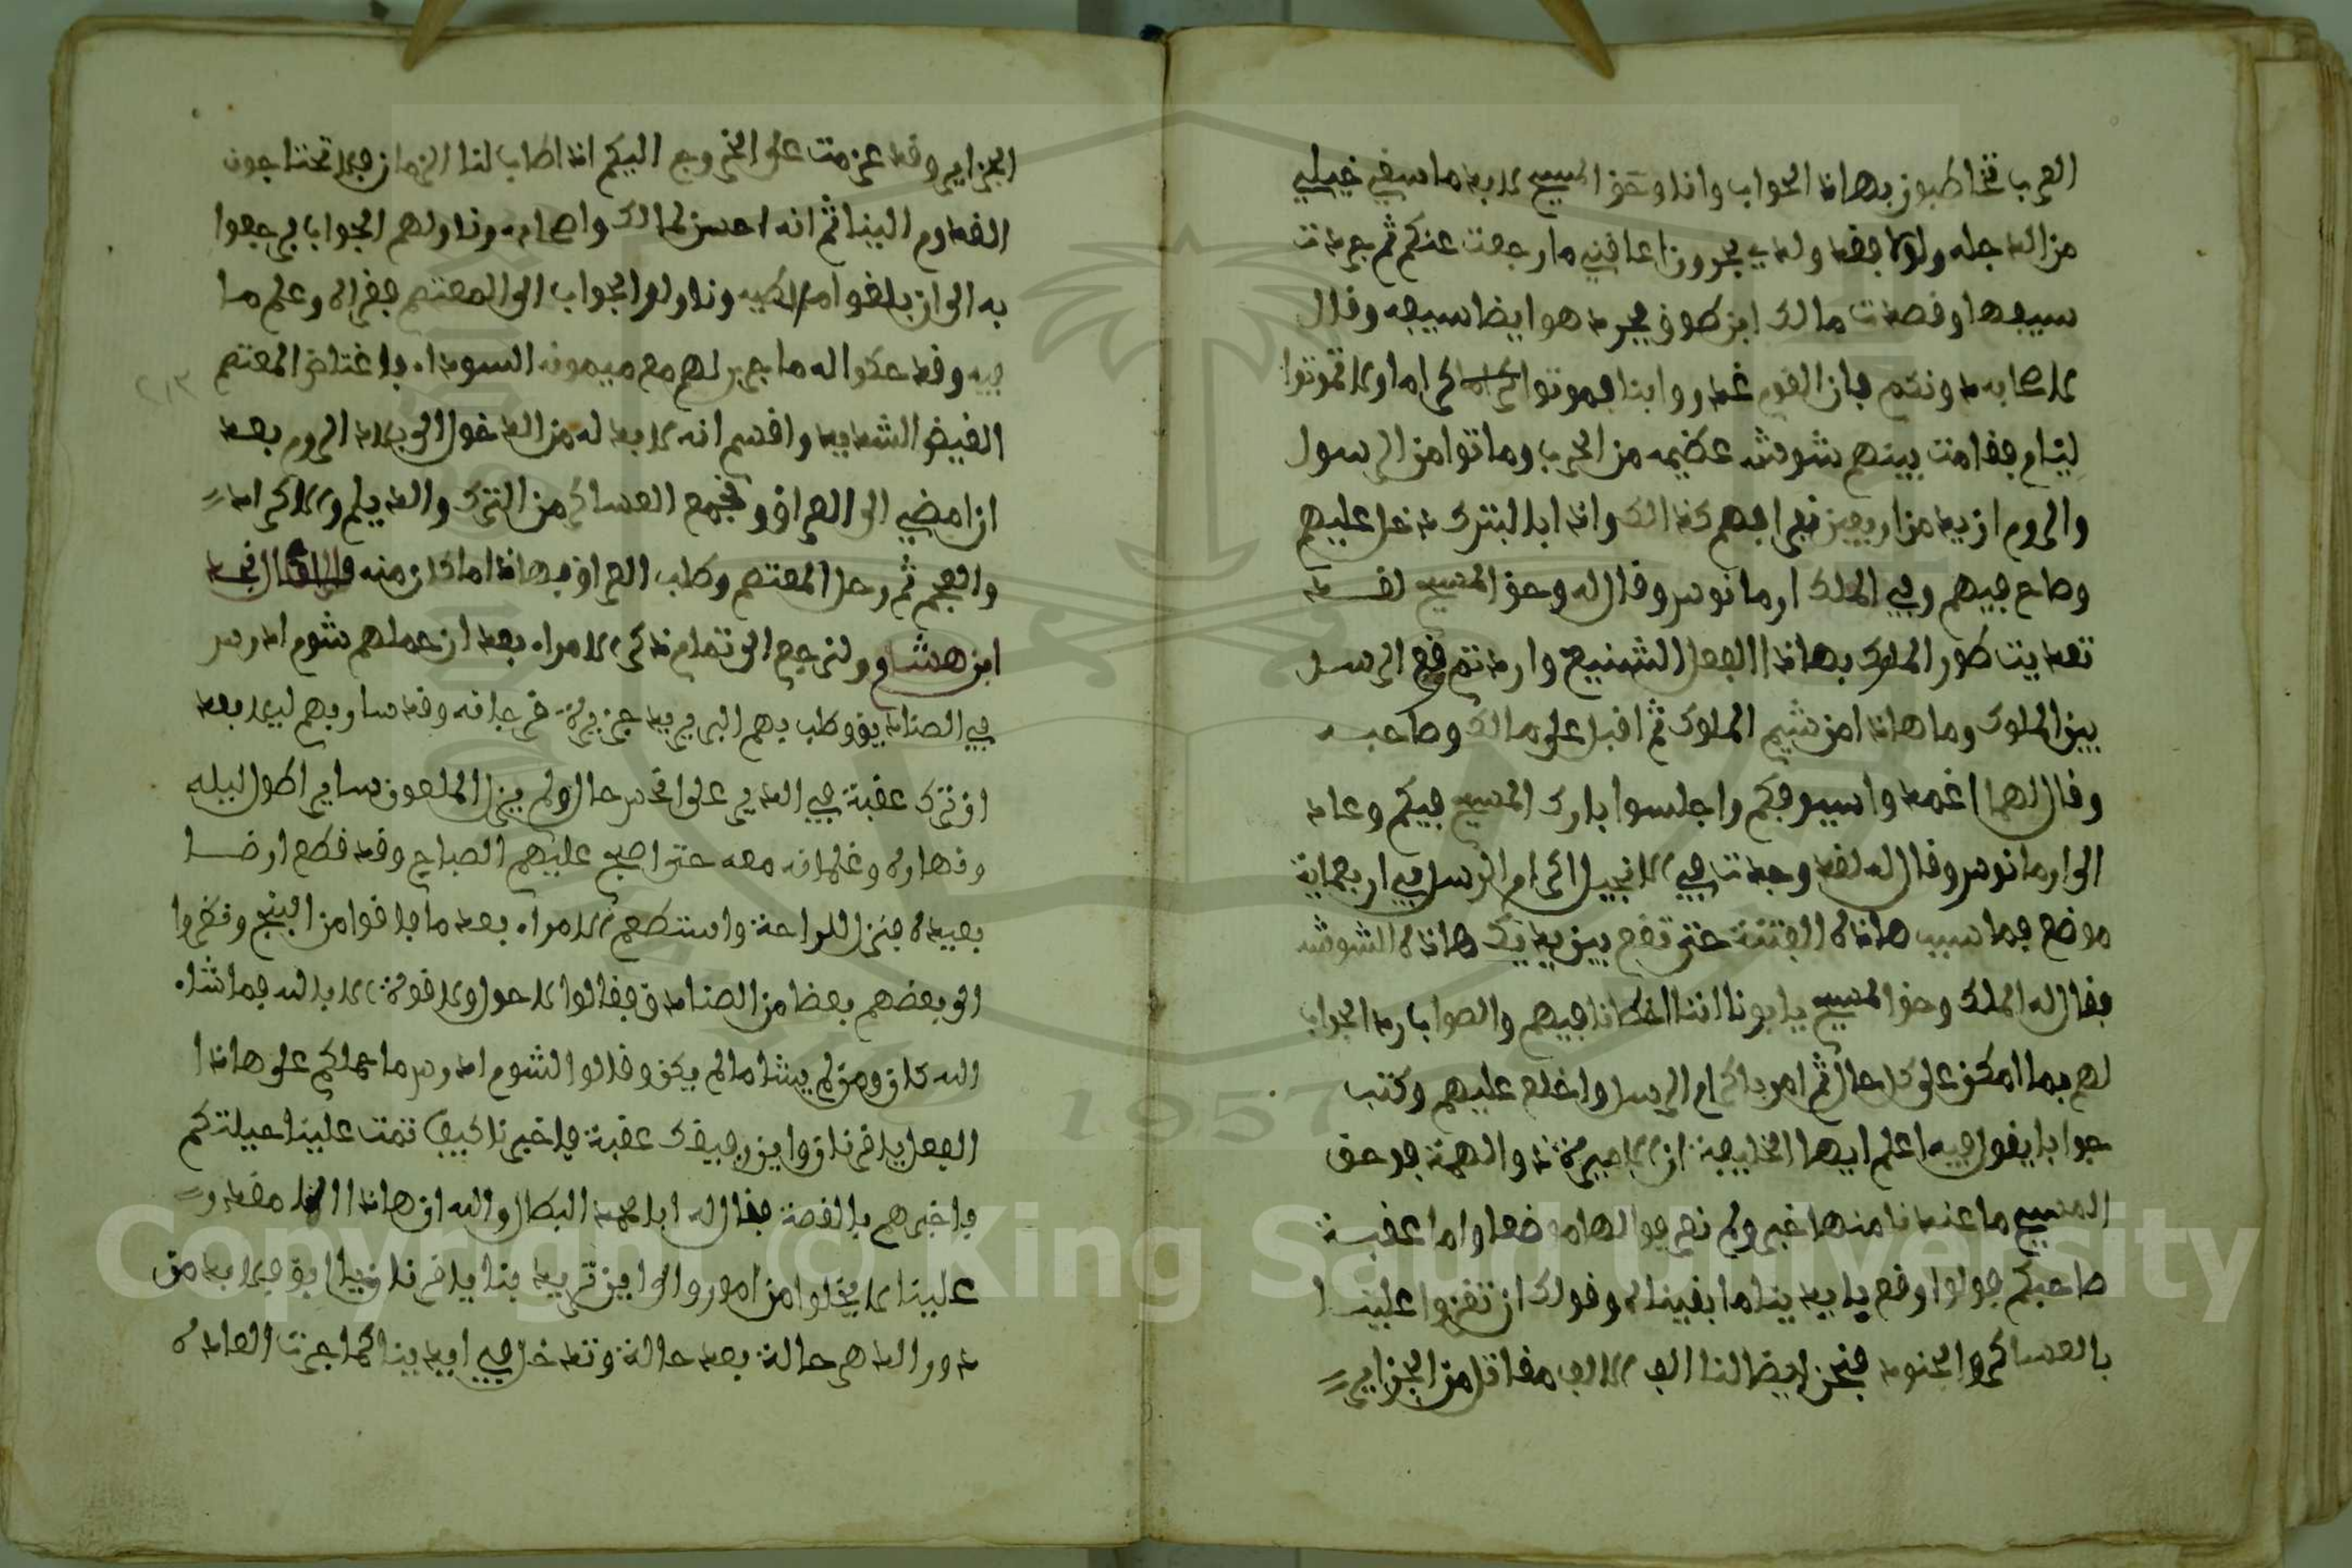 العرب تخاطبون بهاذا الجواب وانا وحق المسيح لا بد ما سيفي خيلي
من الدجله ولولا فقد ولدي بحرون اعاقني ما رجعت عنكم ثم جردت
سيفها وقصدت مالك ابن طوق فجرد هو ايضا سيفه وقال
لاصحابه دونكم فان القوم غدروا بنا فموتوا كراما ولا تموتوا
ليام فقامت بينهم شوشه عظيمه من الحرب وماتوا من الرسول
والروم ازيد من اربعين نفرا فبهم كذالك واذا بالبترك دخل عليهم
وصاح فيهم وفي الملك ارمانوس وقال له وحق المسيح لقد
تعديت طور الملوك بهاذا الفعل الشنيع واردتم وقع الرسل
بين الملوك وما هاذا من شيم الملوك ثم اقبل على مالك وصاحبه
وقال لهما اغمدوا سيوفكم واجلسوا بارك المسيح فيكم وعاد
الى ارمانوس وقال له لقد وجدت في الانجيل اكرام الرسل في اربعماية
موضع فما سبب هاذه الفتنة حتى تقع بين يديك هاذه الشوشه
فقال له الملك وحق المسيح يا ابونا اننا اخطانا فيهم والصواب رد الجواب
لهم بما امكن على كل حال ثم امر باكرام الرسل واخلع عليهم وكتب
جوابا يقول فيه اعلم ايها الخليفة ان الاميرة ذو الهمة فوحق
المسيح ما عندنا منها خبر ولم نعرفوا لها موضعا واما عقبة
صاحبكم فولوا وقع بايدينا ما بقيناه وقولك ان تغزوا علينا
بالعساكر والجنود فنحن ايضا لنا الف الاف مقاتل من الجزاير
الجزاير وقد عزمت على الخروج اليكم اذا طاب لنا الزمان فلا تحتاجون
القدوم الينا ثم انه احسن لمالك واصحابه وناولهم الجواب فرجعوا
به الى ان بلغوا ملطيه وناولوا الجواب الى المعتصم فقراه وعلم ما
فيه وقد حكوا له ما جرى لهم مع ميمونه السوداء فاغتاض المعتصم
الغيض الشديد واقسم انه لا بد له من الدخول الى بلاد الروم بعد
ان امضي الى العراق ونجمع العساكر من الترك والديلم والاكراد
والعجم ثم رحل المعتصم وطلب العراق بهاذا ما كان منه قال نجد
ابن هشام ولنرجع الى تمام ذكر الامراء بعد ان حملهم شوم ادرس
في الصناديق وطلب بهم البر يريد جزيرة فرجانه وقد سار بهم ليلا بعد
ان ترك عقبة في الدير على انحس حال ولم يزل الملعون ساير طول ليله
ونهاره وغلمانه معه حتى اصبح عليهم الصباح وقد قطع ارضا
بعيده فنزل للراحة واستطعم الامراء بعد ما فاقوا من البنج ونظروا
الى بعضهم بعضا من الصنادق فقالوا لا حول ولا قوة الا بالله فما شاء
الله كان ومن لم يشا ما لم يكن وقالوا لشوم ادرس ما حملكم على هاذا
الفعل يا قرنان واين رفيقك عقبة فاخبرنا كيف تمت علينا حيلتكم
فاخبرهم بالقصة فقال له ابا محمد البطال والله ان هاذا مقدور
علينا لا يخلوا من امور والى اين تريد بنا يا قرنان
دور الدهر حالة بعد حالة وتدخل في ايدينا كما جرت العاده